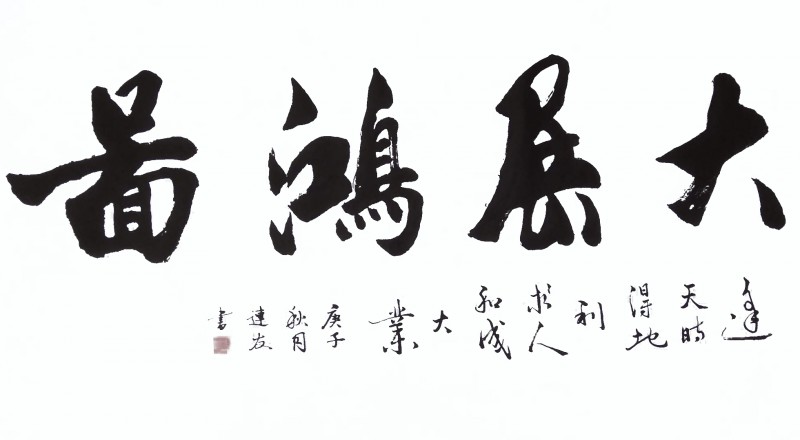 大展鴻圖
逢
天時
得地
利
於人
和成
大
業
庚子
秋月
連友
書